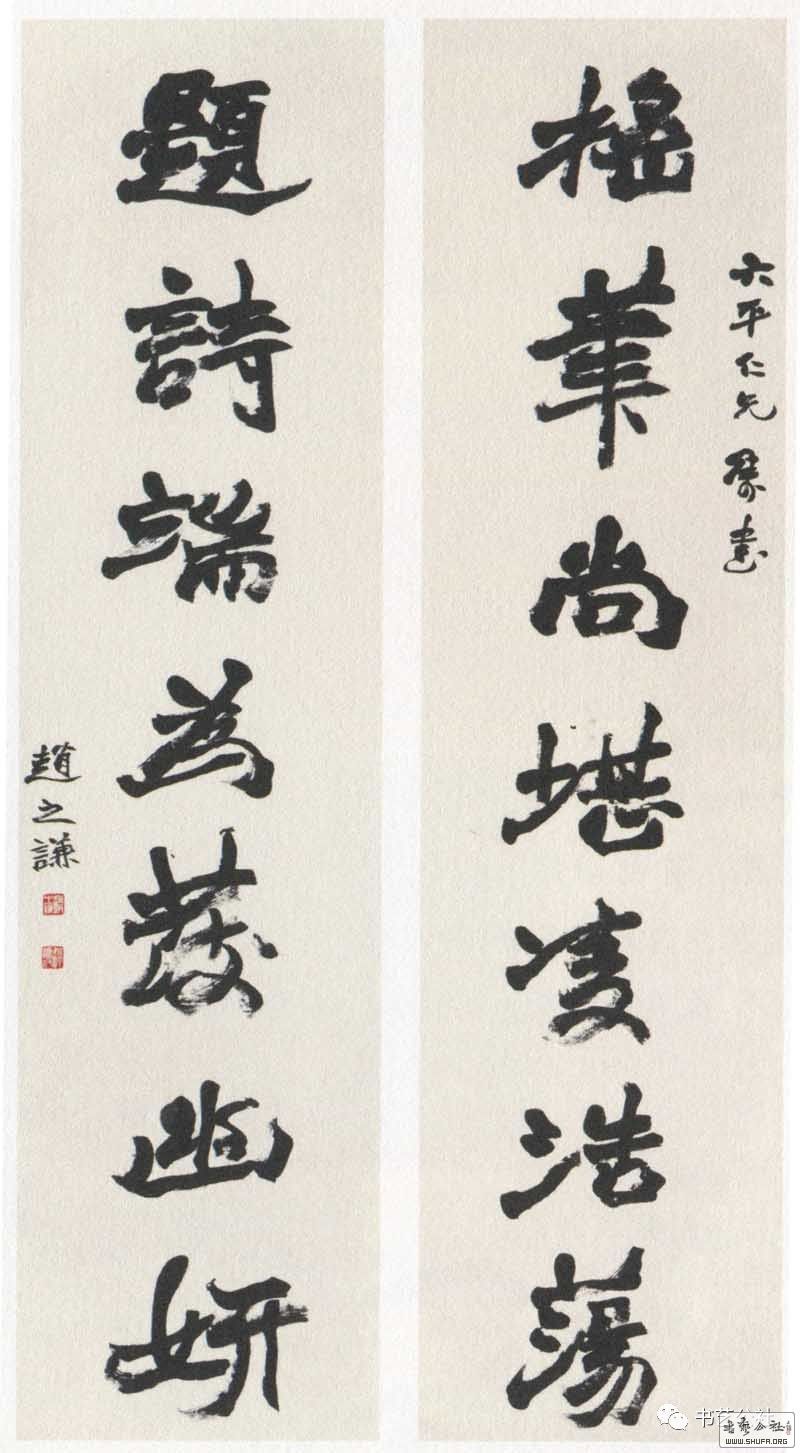 六平仁兄屬書
搖筆尚堪凌浩蕩
題詩端為發幽妍
趙之謙
书艺公社
書藝公社
WWW.SHUFA.ORG